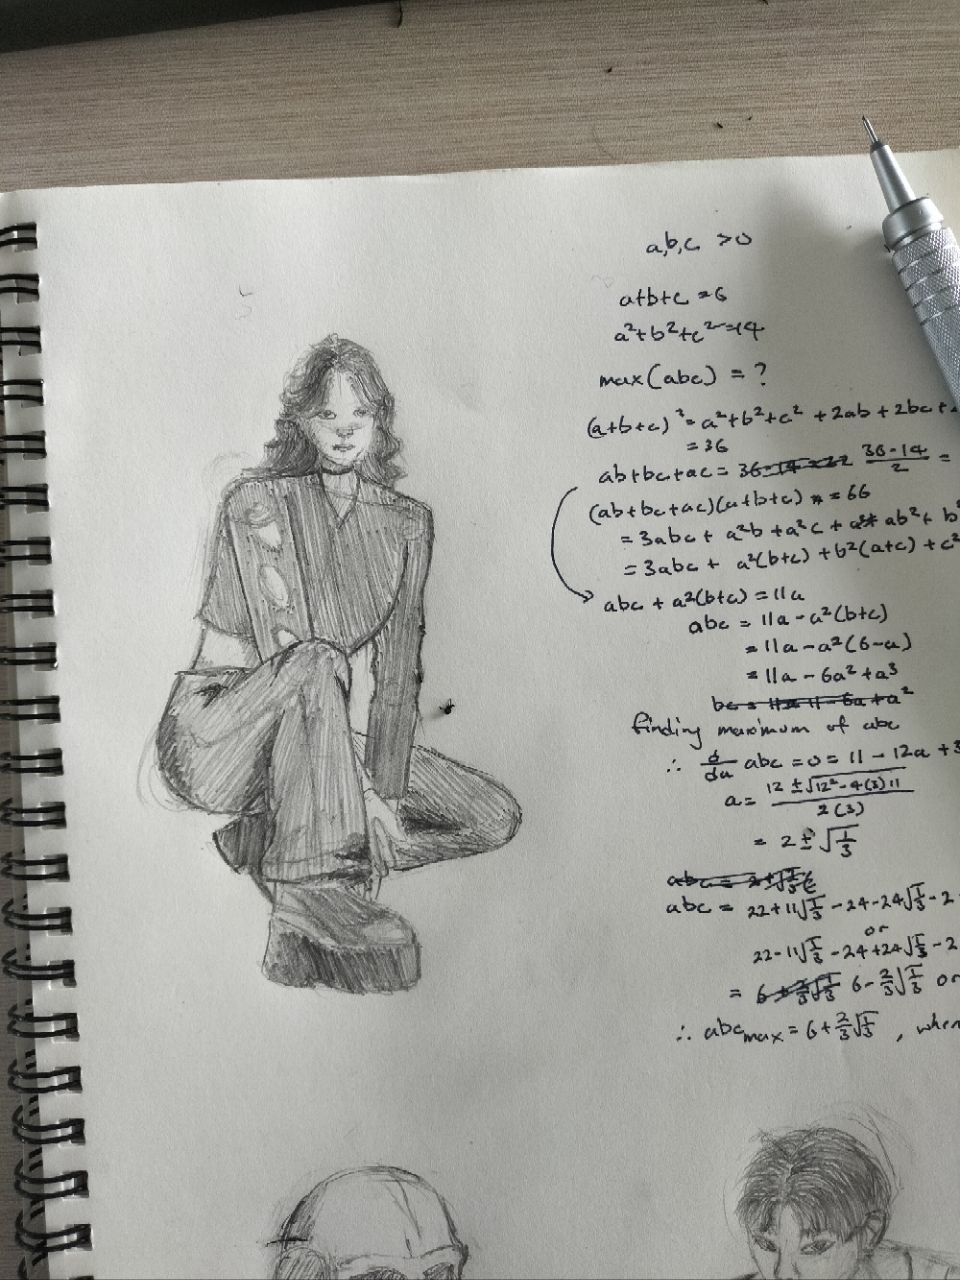 a,b,c >0
a+b+c = 6
a²+b²+c² = 14
max(abc) = ?
(a+b+c)² = a²+b²+c² + 2ab + 2bc +
= 36
ab+bc+ac = 36-14 = 22 (36-14)/2 =
(ab+bc+ac)(a+b+c) = 66
= 3abc + a²b + a²c + ab² + b
= 3abc + a²(b+c) + b²(a+c) + c²
abc + a²(b+c) = 11a
abc = 11a - a²(b+c)
= 11a - a²(6-a)
= 11a - 6a² + a³
finding maximum of abc
∴ d/da abc = 0 = 11 - 12a + 3
a = (12 ± √(12² - 4(3)11))/(2(3))
= 2 ± √(1/3)
abc = 2+√(1/3)
abc = 22+11√(1/3) - 24 - 24√(1/3) - 2
or
22-11√(1/3) - 24 + 24√(1/3) - 2
= 6+2/3√(1/3) 6 - 2/3√(1/3) or
∴ abc max = 6 + 2/3√(1/3) , when